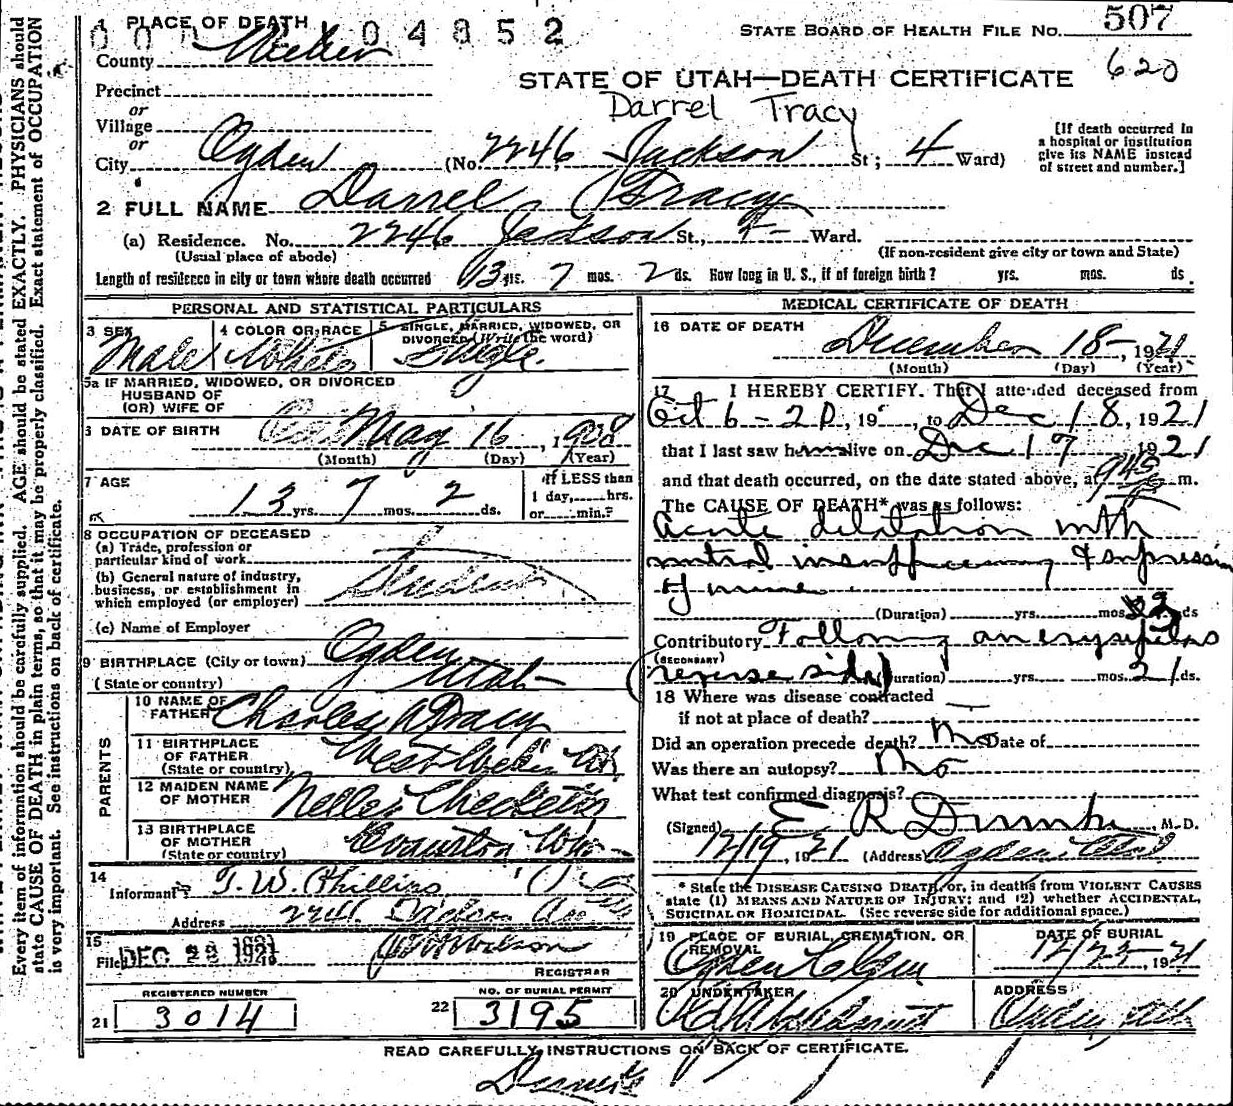 1 PLACE OF DEATH
04852
STATE BOARD OF HEALTH FILE No. 507
County Weber
620
STATE OF UTAH—DEATH CERTIFICATE
Precinct
or
Darrel Tracy
Village
or
City Ogden (No 2246 Jackson St; 4 Ward)
[If death occurred in a hospital or institution give its NAME instead of street and number.]
2 FULL NAME Darrel Tracy
(a) Residence. No. 2246 Jackson St., Ward.
(Usual place of abode) (If non-resident give city or town and State)
Length of residence in city or town where death occurred 13 yrs. 7 mos. 2 ds. How long in U. S., if of foreign birth? yrs. mos. ds
PERSONAL AND STATISTICAL PARTICULARS
3 SEX Male
4 COLOR OR RACE White
5 SINGLE, MARRIED, WIDOWED, OR DIVORCED (Write the word) Single.
5a IF MARRIED, WIDOWED, OR DIVORCED
HUSBAND OF
(OR) WIFE OF
DATE OF BIRTH May 16, 1908
(Month) (Day) (Year)
7 AGE 13 yrs 7 mos. 2 ds.
If LESS than 1 day, hrs. or min.?
8 OCCUPATION OF DECEASED
(a) Trade, profession or particular kind of work
Student
(b) General nature of industry, business, or establishment in which employed (or employer)
(c) Name of Employer
9 BIRTHPLACE (City or town) Ogden
(State or country) Utah
PARENTS
10 NAME OF FATHER Charles Tracy
11 BIRTHPLACE OF FATHER (State or country) West Weber
12 MAIDEN NAME OF MOTHER Nellie Checketts
13 BIRTHPLACE OF MOTHER (State or country) Evanston Wyo
14
Informant T. W. Phillips
Address 2246 Jackson Ave
15
Filed DEC 22 1921
Wilson
REGISTRAR
REGISTERED NUMBER
21 3014
NO. OF BURIAL PERMIT
22 3195
MEDICAL CERTIFICATE OF DEATH
16 DATE OF DEATH
December 18, 1921
(Month) (Day) (Year)
17 I HEREBY CERTIFY. That I attended deceased from
Oct 6-20, 19, to Dec 18, 1921
that I last saw him alive on Dec 17 1921
and that death occurred, on the date stated above, at 945 m.
The CAUSE OF DEATH* was as follows:
Acute dilatation with
mitral insufficiency & supression
of urine
(Duration) yrs. mos. 3 ds
Contributory Following an erysipelas
(SECONDARY) (reverse side) (Duration) yrs. mos. 21 ds.
18 Where was disease contracted
if not at place of death?
Did an operation precede death? no Date of
Was there an autopsy? no
What test confirmed diagnosis?
(Signed) E R Dumke, M. D.
12/19, 1921 (Address) Ogden Utah
* State the DISEASE CAUSING DEATH, or, in deaths from VIOLENT CAUSES
state (1) MEANS AND NATURE OF INJURY; and (2) whether ACCIDENTAL,
SUICIDAL OR HOMICIDAL. (See reverse side for additional space.)
19 PLACE OF BURIAL, CREMATION, OR REMOVAL
Ogden
DATE OF BURIAL
12/22, 1921
20 UNDERTAKER
ADDRESS
Ogden, Utah
READ CAREFULLY INSTRUCTIONS ON BACK OF CERTIFICATE.
Every item of information should be carefully supplied. AGE should be stated EXACTLY. PHYSICIANS should
state CAUSE OF DEATH in plain terms, so that it may be properly classified. Exact statement of OCCUPATION
is very important. See instructions on back of certificate.